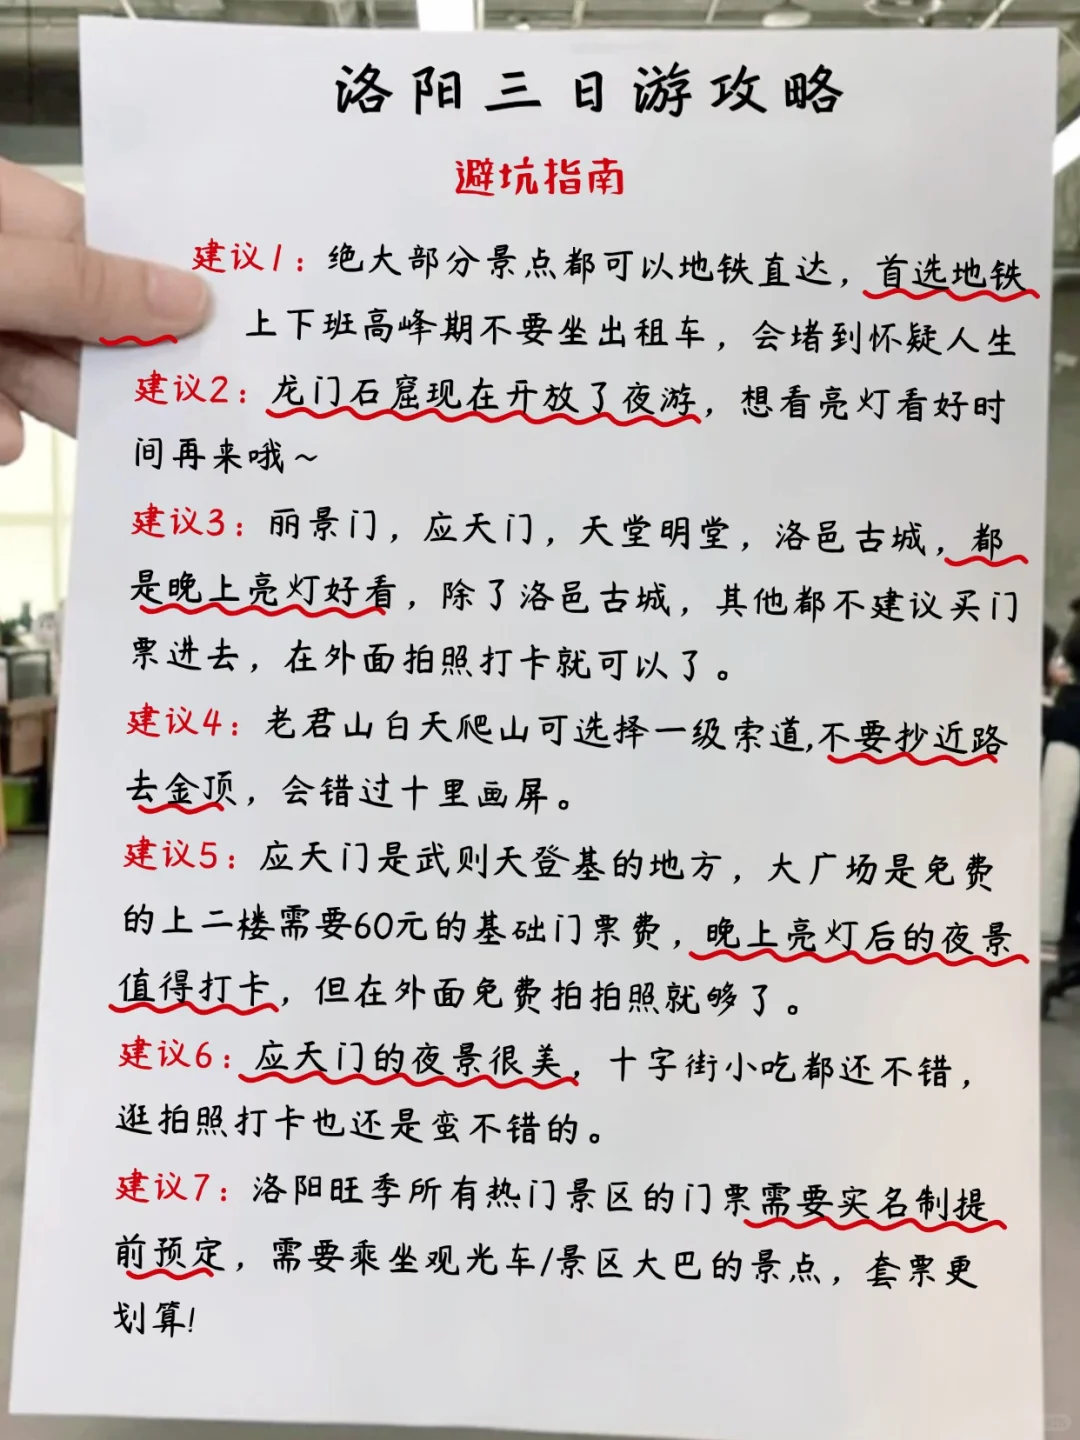 洛阳三日游攻略
避坑指南
建议1：绝大部分景点都可以地铁直达，首选地铁
上下班高峰期不要坐出租车，会堵到怀疑人生
建议2：龙门石窟现在开放了夜游，想看亮灯看好时
间再来哦~
建议3：丽景门，应天门，天堂明堂，洛邑古城，都
是晚上亮灯好看，除了洛邑古城，其他都不建议买门
票进去，在外面拍照打卡就可以了。
建议4：老君山白天爬山可选择一级索道,不要抄近路
去金顶，会错过十里画屏。
建议5：应天门是武则天登基的地方，大广场是免费
的上二楼需要60元的基础门票费，晚上亮灯后的夜景
值得打卡，但在外面免费拍拍照就够了。
建议6：应天门的夜景很美，十字街小吃都还不错，
逛拍照打卡也还是蛮不错的。
建议7：洛阳旺季所有热门景区的门票需要实名制提
前预定，需要乘坐观光车/景区大巴的景点，套票更
划算!